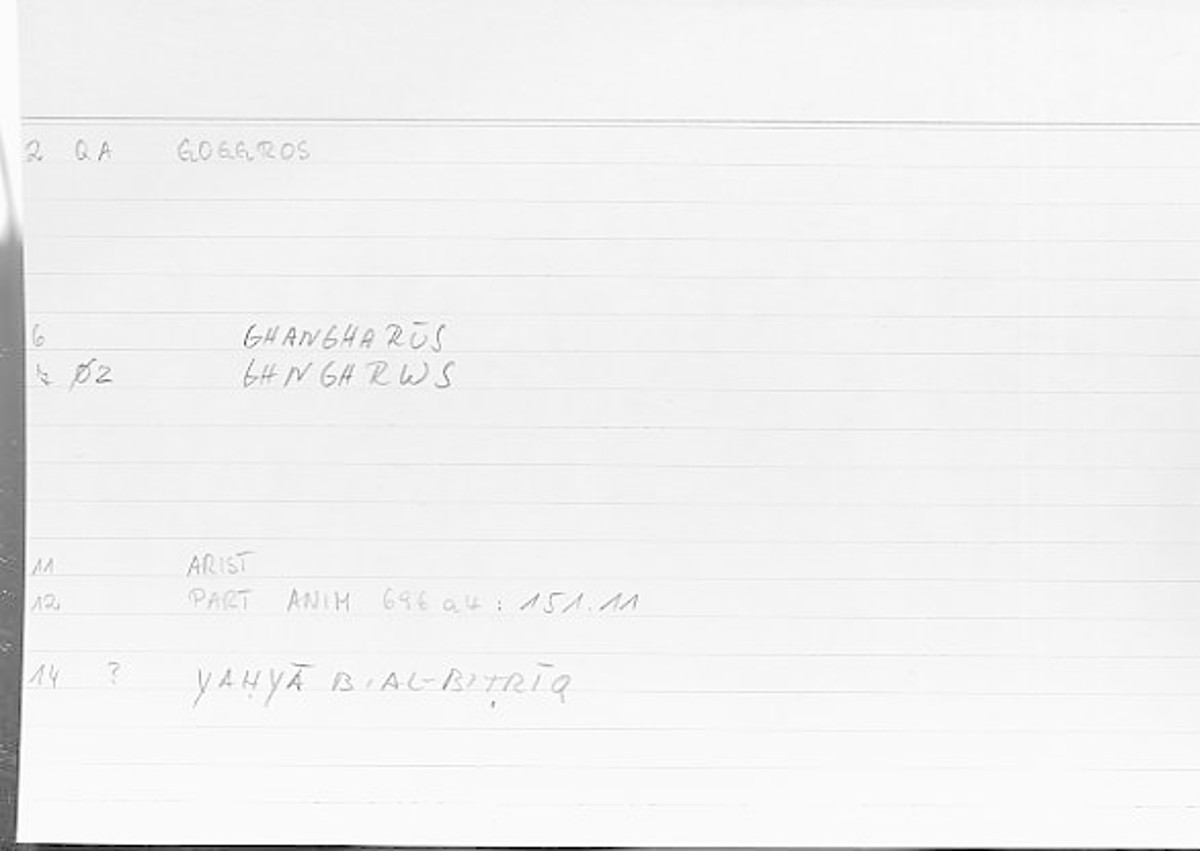 2 QA GOGGROS
6 GHANGHARŪS
Ø2 GHNGHRWS
11 ARIST
12 PART ANIM 696 a4 : 151.11
14 ? YAḤYĀ B. AL-BIṬRĪQ